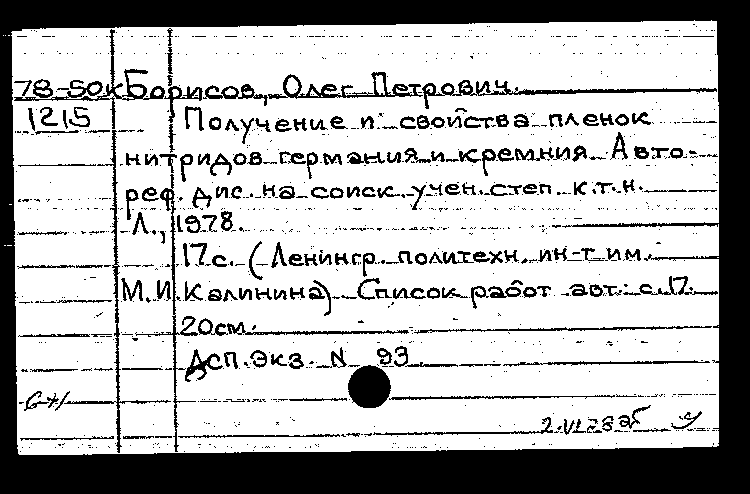 78-50к Борисов, Олег Петрович.
1215 Получение и свойства пленок
нитридов германия и кремния. Авто-
реф. дис. на соиск. учен. степ. к.т.н.
Л., 1978.
17с. (Ленингр. политехн. ин-т им.
М.И. Калинина) Список работ авт.: с.17.
20см.
Дсп. Экз. N 93.